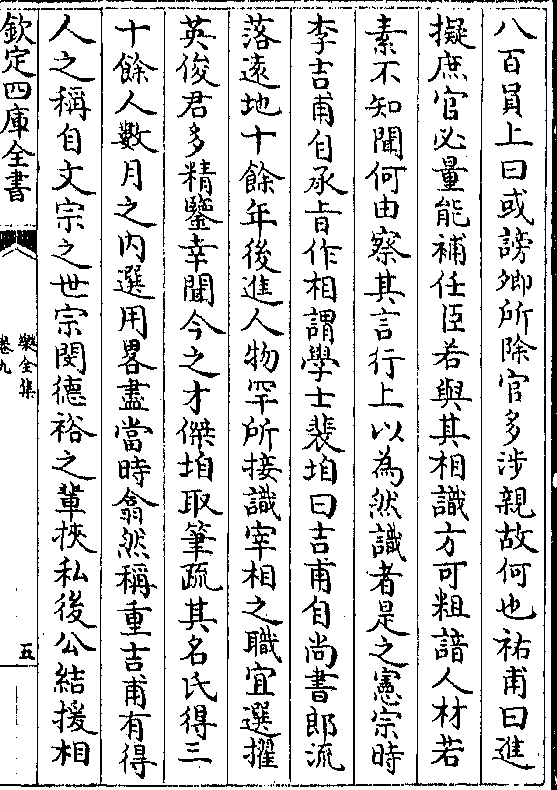 八百員上曰或謗卿所除官多涉親故何也祐甫曰進
擬庶官必量能補任臣若與其相識方可粗諳人材若
素不知聞何由察其言行上以為然識者是之憲宗時
李吉甫自承㫖作相謂學士裴垍曰吉甫自尚書郎流
落逺地十餘年後進人物罕所接識宰相之職宜選擢
英俊君多精鑒幸聞今之才傑垍取筆疏其名氏得三
十餘人數月之内選用畧盡當時翕然稱重吉甫有得
人之稱自文宗之世宗閔德裕之輩挾私後公結援相
欽定四庫全書
樂全集
卷九
五